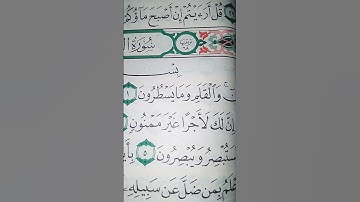 قُلْ أَرَءَيْتُمْ إِنْ أَصْبَحَ مَآؤُكُمْ
سُورَةُ
بِسْ
وَٱلْقَلَمِ وَمَا يَسْطُرُونَ ١
إِنَّ لَكَ لَأَجْرًا غَيْرَ مَمْنُونٍ
سَتُبْصِرُ وَيُبْصِرُونَ ٥ بِأَي
عْلَمُ بِمَن ضَلَّ عَن سَبِيلِهِ